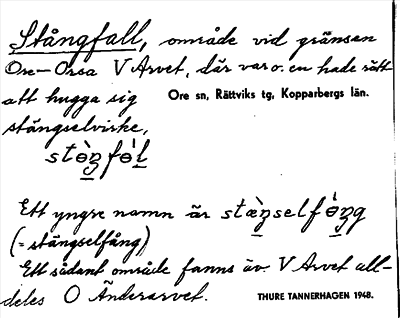 Stångfall, område vid gränsen
Ore–Orsa V Arvet, där var o. en hade rätt
att hugga sig
Ore sn, Rättviks tg, Kopparbergs län.
stängselvirke,
Ett yngre namn är
(= stängselfång)
Ett sådant område fanns äv. V Arvet all-
deles O Änderarvet.
THURE TANNERHAGEN 1948.